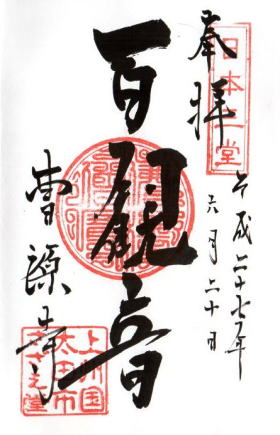 日本 堂
奉拝
平成二十七年
六月二十日
百観音
曹源寺
上州国
太田市
さざえ堂